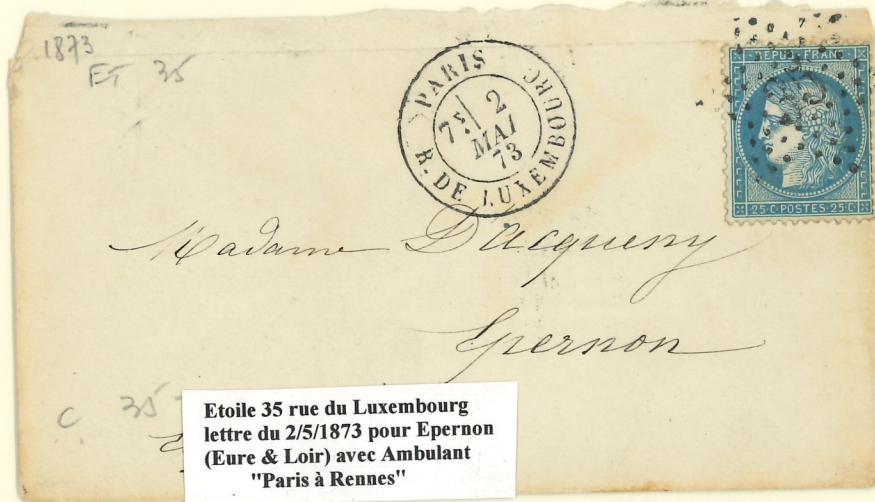 1873
ET 35
PARIS
7E 2
MAI
73
R. DE LUXEMBOURG
REPUB. FRANC.
25·C·POSTES·25·C
Madame Dacqueny
Epernon
C 35
Etoile 35 rue du Luxembourg
lettre du 2/5/1873 pour Epernon
(Eure & Loir) avec Ambulant
"Paris à Rennes"